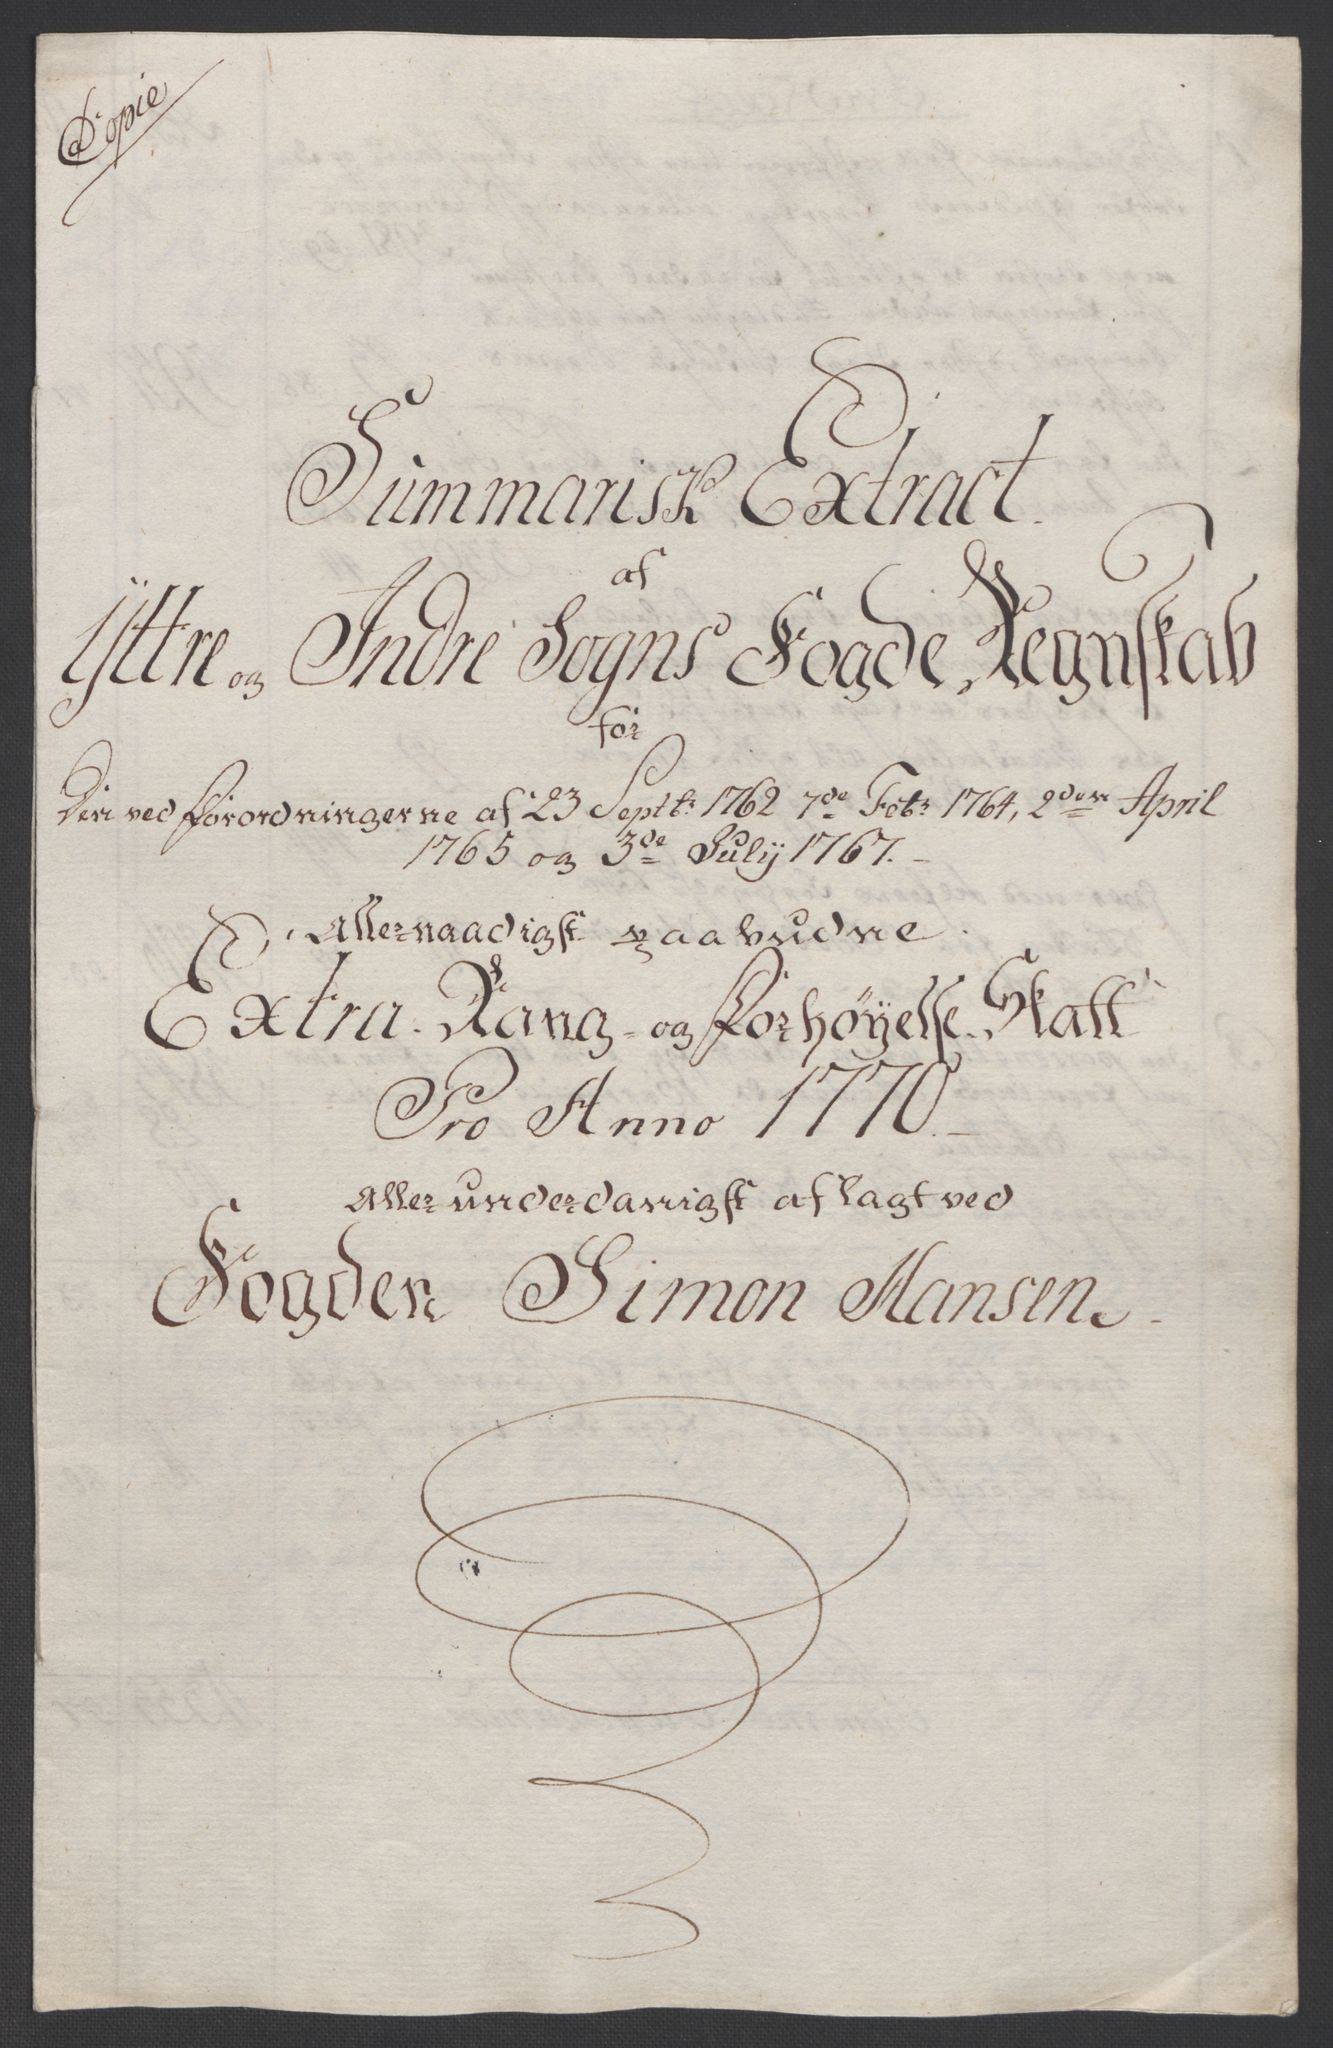 Copie
Summarisk Extract.
af
Yttre og Indre Sogns Fogde Regnskab
for
Den ved Forordningerne af 23 Septbr: 1762 7de Febr: 1764, 2den April
1765 og 3de July 1767.
Allernaadigst paabudne
Extra- Rang- og Forhøyelse-Skatt
Pro Anno 1770.
Allerunderdanigst aflagt ved
Fogden Simon Hansen.